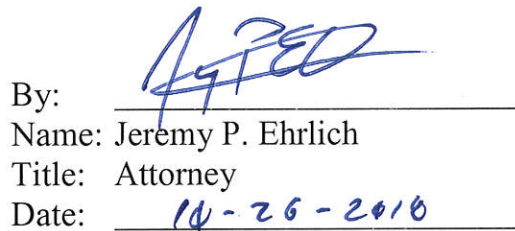 By:
Name: Jeremy P. Ehrlich
Title: Attorney
Date: 10-26-2010